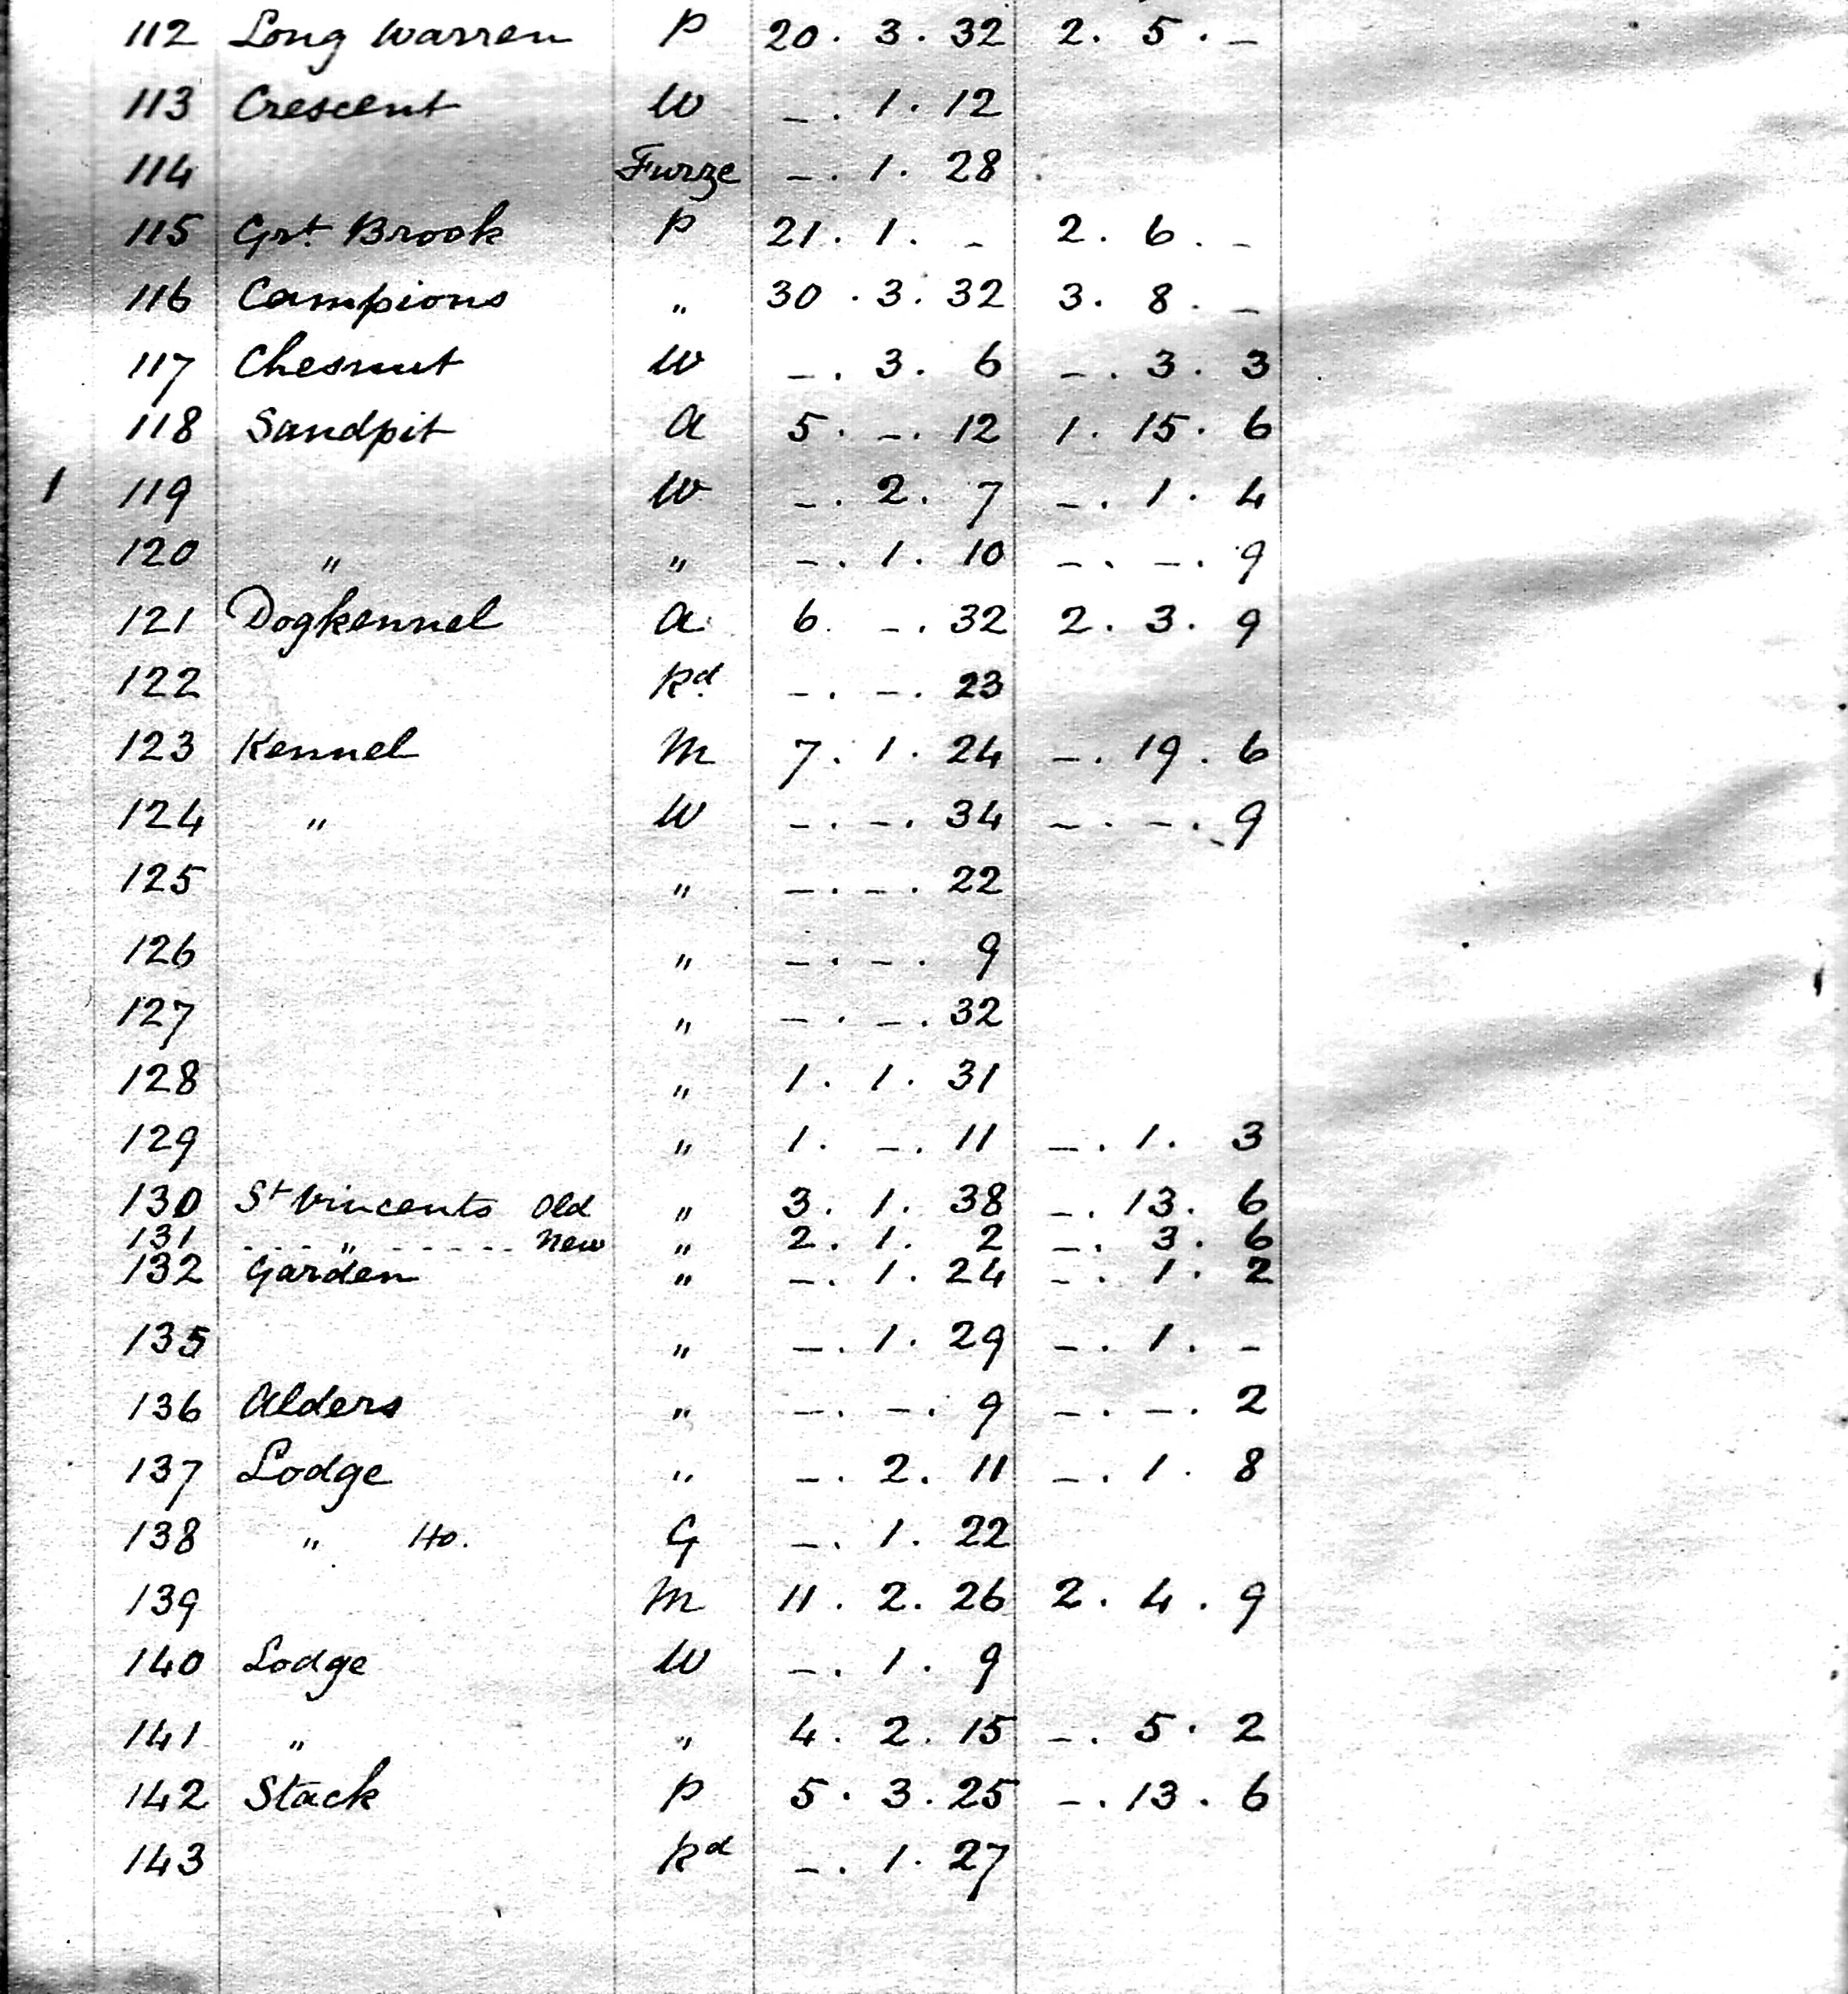 112 Long Warren P 20. 3. 32 2. 5. _
113 Crescent W _. 1. 12
114 Furze _. 1. 28
115 Grt Brook P 21. 1. _ 2. 6. _
116 Campions " 30. 3. 32 3. 8. _
117 Chesnut W _. 3. 6 _. 3. 3
118 Sandpit a 5. _. 12 1. 15. 6
1 119 W _. 2. 7 _. 1. 4
120 " " _. 1. 10 _. _. 9
121 Dogkennel a 6. _. 32 2. 3. 9
122 Pd _. _. 23
123 Kennel M 7. 1. 24 _. 19. 6
124 " W _. _. 34 _. _. 9
125 " _. _. 22
126 " _. _. 9
127 " _. _. 32
128 " 1. 1. 31
129 " 1. _. 11 _. 1. 3
130 St Vincents Old " 3. 1. 38 _. 13. 6
131 " New " 2. 1. 2 _. 3. 6
132 Garden " _. 1. 24 _. 1. 2
135 " _. 1. 29 _. 1. _
136 Alders " _. _. 9 _. _. 2
137 Lodge " _. 2. 11 _. 1. 8
138 " Ho. G _. 1. 22
139 M 11. 2. 26 2. 4. 9
140 Lodge W _. 1. 9
141 " " 4. 2. 15 _. 5. 2
142 Stack P 5. 3. 25 _. 13. 6
143 Pd _. 1. 27